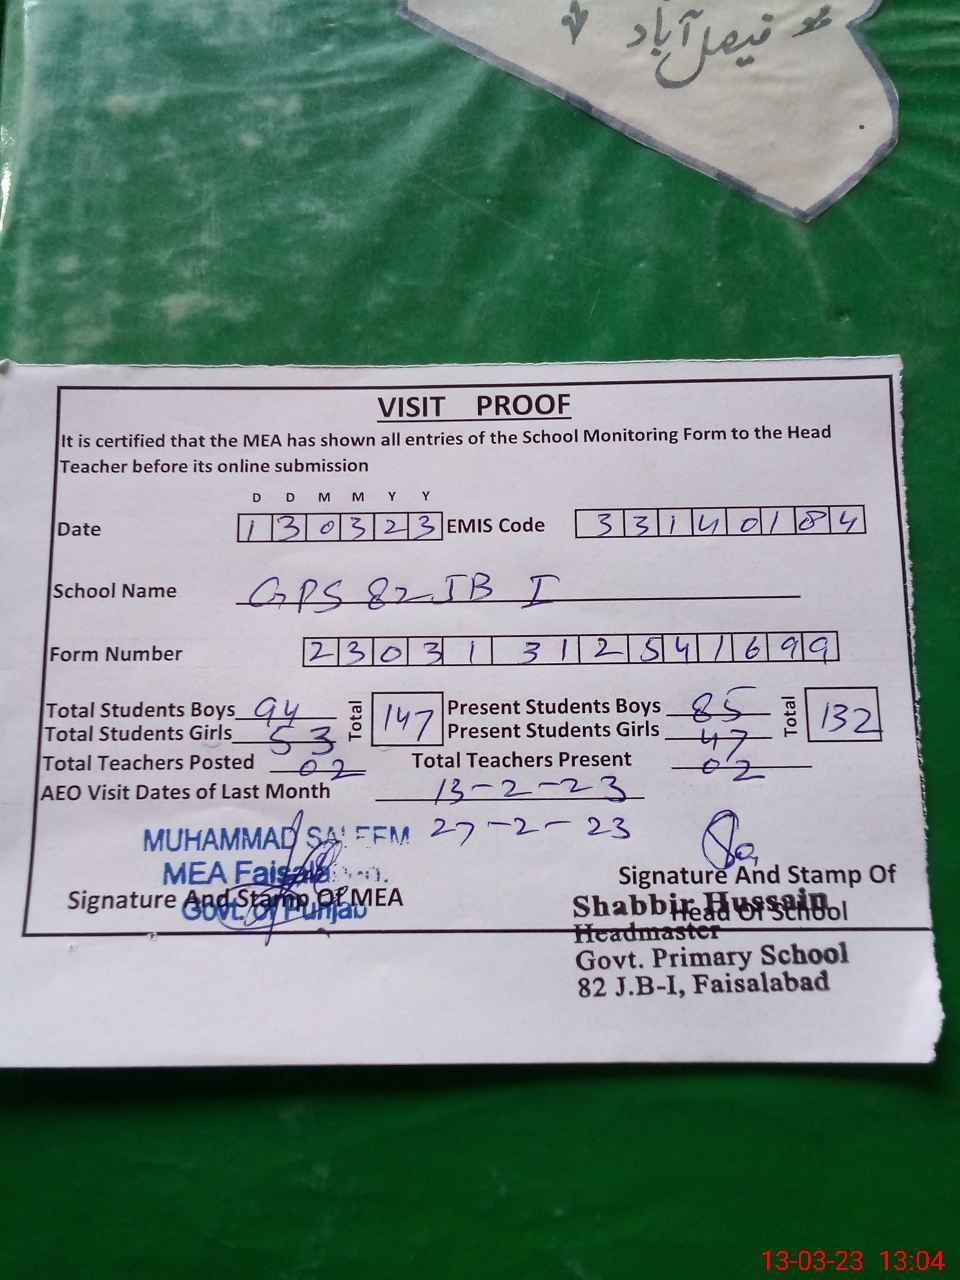 فیصل آباد
VISIT PROOF
It is certified that the MEA has shown all entries of the School Monitoring Form to the Head
Teacher before its online submission
D D M M Y Y
Date 1 3 0 3 2 3 EMIS Code 3 3 1 4 0 1 8 4
School Name GPS 82 JB I
Form Number 2 3 0 3 1 3 1 2 5 4 1 6 9 9
Total Students Boys 94 Total 147 Present Students Boys 85 Total 132
Total Students Girls 53 Present Students Girls 47
Total Teachers Posted 02 Total Teachers Present 02
AEO Visit Dates of Last Month 13-2-23
27-2-23
MUHAMMAD SALEEM
MEA
Govt. of Punjab
Signature And Stamp Of MEA
Signature And Stamp Of
Head Of School
Shabbir Hussain
Headmaster
Govt. Primary School
82 J.B-I, Faisalabad
13-03-23 13:04